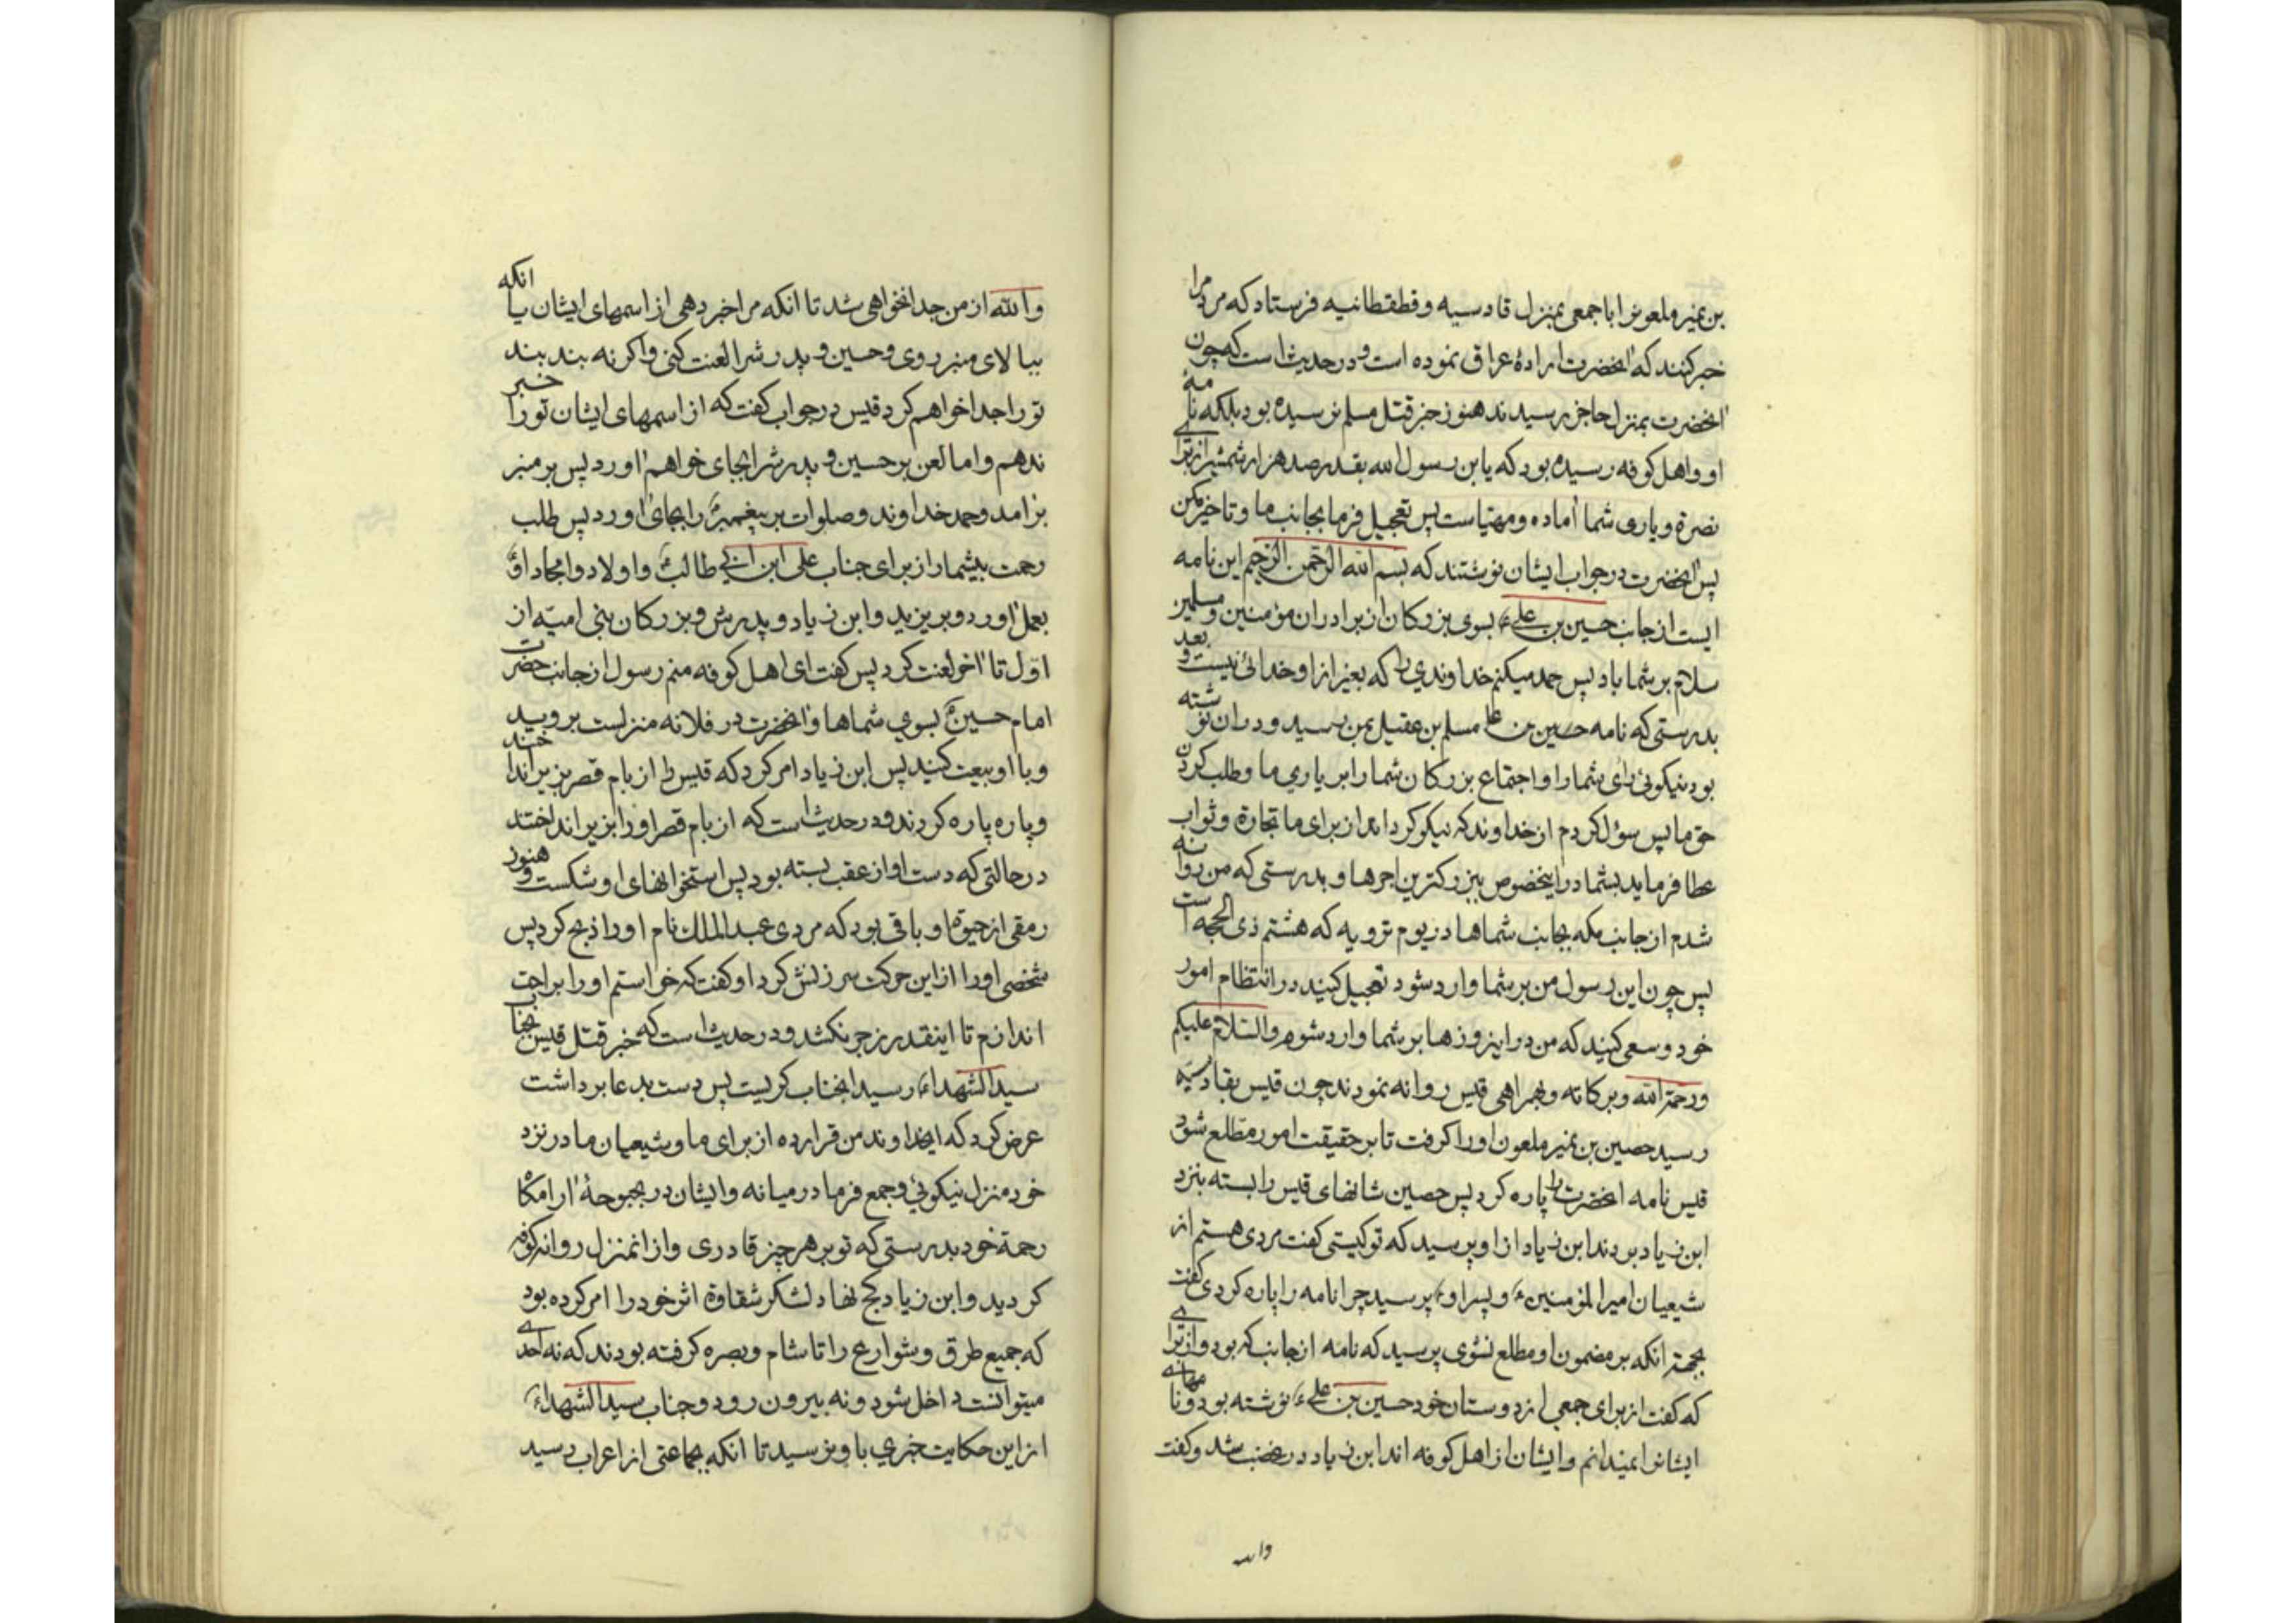 بن نمیر ملعون را با جمعی بمنزل قادسیه و قطقطانیه فرستاد که مردم را
خبر کنند که آنحضرت ارادهٔ عراق نموده است و در حدیث است که چون
آنحضرت بمنزل حاجز رسیدند هنوز خبر قتل مسلم نرسیده بود بلکه نامه
او و اهل کوفه رسیده بود که یابن رسول الله بقدر صد هزار شمشیر از برای
نصرة و یاری شما آماده و مهیا است پس تعجیل فرما بجانب ما و تاخیر مکن
پس آنحضرت در جواب ایشان نوشتند که بسم الله الرحمن الرحیم این نامه
ایست از جانب حسین بن علیء بسوی بزرکان از برادران مؤمنین و مسلمین
سلام بر شما باد پس حمد میکنم خداوندی را که بغیر از او خدائی نیست و بعد
بدرستی که نامه حسین بن علی مسلم بن عقیل بمن رسید و در ان نوشته
بود نیکوئی رای شما را و اجتماع بزرکان شما را بر یاری ما و طلب کردن
حق ما پس سؤل کردم از خداوند که نیکو کرداند از برای ما تجارة و ثواب
عطا فرماید بشما در اینخصوص ببزرکترین اجرها و بدرستی که من روانه
شدم از جانب مکه بجانب شماها در یوم ترویه که هشتم ذی الحجه است
پس چون این رسول من بر شما وارد شود تعجیل کنید در انتظام امور
خود و سعی کنید که من در این روزها بر شما وارد شوم والسلام علیکم
و رحمة الله و برکاته و همراهی قیس روانه نمودند چون قیس بقادسیه
رسید حصین بن نمیر ملعون او را کرفت تا بر حقیقت امور مطلع شود
قیس نامه آنحضرت را پاره کرد پس حصین شانهای قیس را بسته بنزد
ابن زیاد بردند ابن زیاد از او پرسید که تو کیستی کفت مردی هستم از
شیعیان امیر المؤمنینء و پسر اوء پرسید چرا نامه را پاره کردی کفت
بجهة انکه بر مضمون او مطلع نشوی پرسید که نامه از جانب که بود و از برای
که کفت از برای جمعی از دوستان خود حسین بن علیء نوشته بود و نامهای
ایشانرا نمیدانم و ایشان از اهل کوفه اند ابن زیاد در غضب شد و کفت
والله
والله از من جدا نخواهی شد تا انکه مرا خبر دهی از اسمهای ایشان یا انکه
ببالای منبر روی و حسین و پدرش را لعنت کنی و اکر نه بند بند
تو را جدا خواهم کرد قیس در جواب کفت که از اسمهای ایشان تو را خبر
ندهم و اما لعن بر حسین و پدرش را بجای خواهم آورد پس بر منبر
برآمد و حمد خداوند و صلوات بر پیغمبر را بجای آورد پس طلب
رحمت بیشمار از برای جناب علی ابن ابی طالبء و اولاد و امجاد او
بعمل آورد و بر یزید و ابن زیاد و پدرش و بزرکان بنی امیه از
اول تا آخر لعنت کرد پس کفت ای اهل کوفه منم رسول از جانب حضرت
امام حسینء بسوی شماها و آنحضرت در فلانه منزلست بروید
و با او بیعت کنید پس ابن زیاد امر کرد که قیس را از بام قصر بزیر انداختند
و پاره پاره کردند و در حدیث است که از بام قصر او را بزیر انداختند
در حالتی که دست او از عقب بسته بود پس استخوانهای او شکست و هنوز
رمقی از حیوة او باقی بود که مردی عبد الملک نام او را ذبح کرد پس
شخصی او را از این حرکت سرزنش کرد او کفت که خواستم او را براحت
اندازم تا اینقدر زجر نکشد و در حدیث است که خبر قتل قیس بجناب
سید الشهداءء رسید آنجناب کریست پس دست بدعا برداشت
عرض کرد که ایخداوند من قرار ده از برای ما و شیعیان ما در نزد
خود منزل نیکوئی و جمع فرما در میانه و ایشان در بحبوحهٔ آرامکاه
رحمة خود بدرستی که تو بر هر چیز قادری و از انمنزل روانه کوفه
کردید و ابن زیاد کج نهاد لشکر شقاوة اثر خود را امر کرده بود
که جمیع طرق و شوارع را تا شام و بصره کرفته بودند که نه احدی
میتوانست داخل شود و نه بیرون رود و جناب سید الشهداءء
از این حکایت خبری باو نرسید تا انکه بجماعتی از اعراب رسید